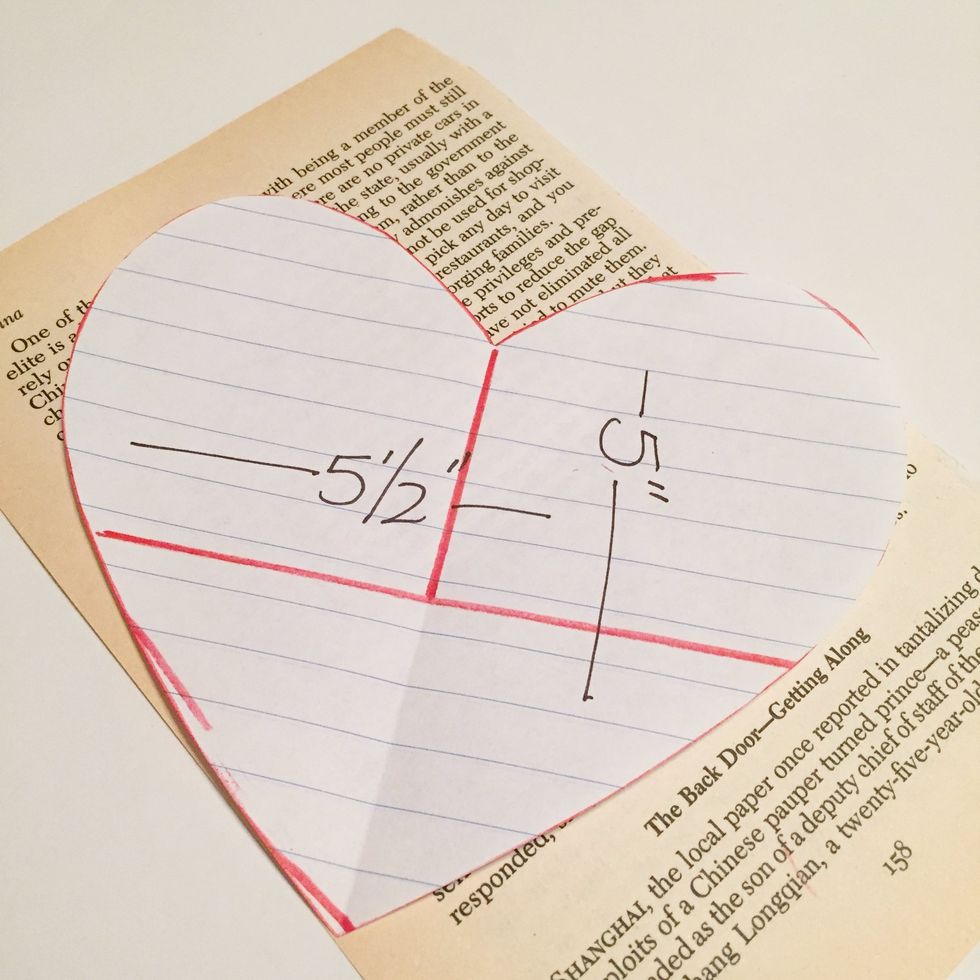 with being a member of the
ere most people must still
re are no private cars in
he state, usually with a
ng to the government
m, rather than to the
y admonishes against
not be used for shop-
pick any day to visit
restaurants, and you
orging families.
e privileges and pre-
orts to reduce the gap
ve not eliminated all
to mute them.
they
at
ina
One of th
elite is a
rely o
Chi
ch
5 1/2"
5"
responded,
The Back Door—Getting Along
SHANGHAI, the local paper once reported in tantalizing d
ploits of a Chinese pauper turned prince—a peas
ded as the son of a deputy chief of staff of the
hang Longqian, a twenty-five-year-old
158